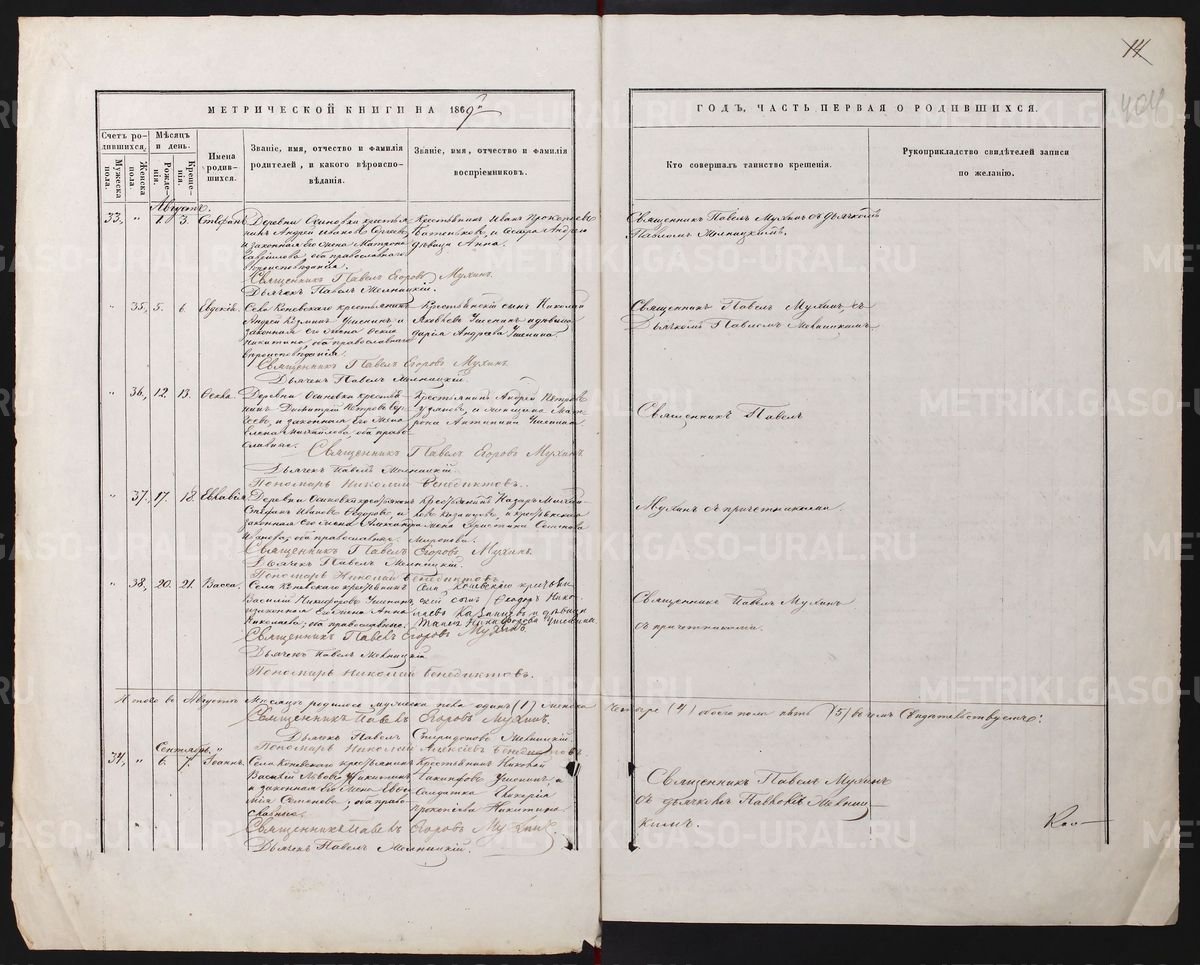 14
404
МЕТРИЧЕСКОЙ КНИГИ НА 1869й
ГОДЪ, ЧАСТЬ ПЕРВАЯ О РОДИВШИХСЯ.
Счетъ родившихся.
Мужеска пола.
Женска пола.
Мѣсяцъ и день.
Рожденія.
Крещенія.
Имена родившихся.
Званіе, имя, отчество и фамилія
родителей, и какого вѣроиспо-
вѣданія.
Званіе, имя, отчество и фамилія
воспріемниковъ.
Кто совершалъ таинство крещенія.
Рукоприкладство свидѣтелей записи
по желанію.
Августъ.
33. " 1. 3. Стефанъ
Деревни Осиновки крестья-
нинъ Андрей Ивановъ
и законная его жена Матрона
оба православнаго
вѣроисповѣданія.
Крестьянинъ Иванъ Прокопьевъ
и сестра Андрея
дѣвица Анна.
Священникъ Павелъ Мухинъ съ дьячкомъ
Павломъ Мельницкимъ.
Священникъ Павелъ Егоровъ Мухинъ.
Дьячекъ Павелъ Мельницкій.
" 35. 5. 6.
Села Коневскаго крестьянинъ
Андрей Ушенинъ и
законная его жена
Никитина, оба православнаго
вѣроисповѣданія.
Крестьянскій сынъ Николай
Яковлевъ Ушенинъ и дѣвица
Дарія Андреева Ушенина.
Священникъ Павелъ Мухинъ, съ
Дьячкомъ Павломъ Мельницкимъ
Священникъ Павелъ Егоровъ Мухинъ
Дьячекъ Павелъ Мельницкій.
" 36. 12. 13. Ѳекла.
Деревни Осиновки крестья-
нинъ Димитрій Петровъ
и законная его жена
Елена Михайлова, оба право-
славные.
Крестьянинъ Андрей Петровъ
и Мат-
рона Антипина Ушенина.
Священникъ Павелъ
Священникъ Павелъ Егоровъ Мухинъ
Дьячекъ Павелъ Мельницкій.
Пономарь Николай Бенедиктовъ.
" 37. 17. 18. Евлавія
Деревни Осиновки крестьянинъ
Стефанъ Ивановъ Ѳедоровъ, и
законная его жена Александра
Иванова, оба православные.
Крестьянинъ Назаръ
Казанцевъ, и крестьянская
жена Христина Семенова
Миронова.
Мухинъ съ причетниками.
Священникъ Павелъ Егоровъ Мухинъ.
Дьячекъ Павелъ Мельницкій.
Пономарь Николай Бенедиктовъ.
" 38. 20. 21. Васса.
Села Коневскаго крестьянинъ
Василій Никифоровъ Ушенинъ,
и законная его жена Анна
Николаева; оба православные.
Села Коневскаго крестьян-
скій сынъ Ѳеодоръ Нико-
лаевъ Казанцевъ и дѣвица
Никифорова Ушенина.
Священникъ Павелъ Мухинъ
съ причетниками.
Священникъ Павелъ Егоровъ Мухинъ.
Дьячекъ Павелъ Мельницкій
Пономарь Николай Бенедиктовъ.
Итого въ Августѣ мѣсяцѣ родилось мужеска пола одинъ (1) женска
четыре (4) обоего пола пять (5) во чемъ свидѣтельствуемъ:
Священникъ Павелъ Егоровъ Мухинъ.
Дьячекъ Павелъ Спиридоновъ Мельницкій.
Пономарь Николай Алексѣевъ Бенедиктовъ
Сентябрь. "
34. " 6. 7. Іоаннъ.
Села Коневскаго крестьянинъ
Василій Львовъ Никитинъ
и законная его жена Евѳи-
мія Семенова; оба право-
славные.
Крестьянинъ Николай
Іакинфовъ Ушенинъ, и
солдатка Гликерія
Прокопіева Никитина.
Священникъ Павелъ Мухинъ
съ дьячкомъ Павломъ Мельниц-
кимъ.
Священникъ Павелъ Егоровъ Мухинъ.
Дьячекъ Павелъ Мельницкій.
METRIKI.GASO-URAL.RU